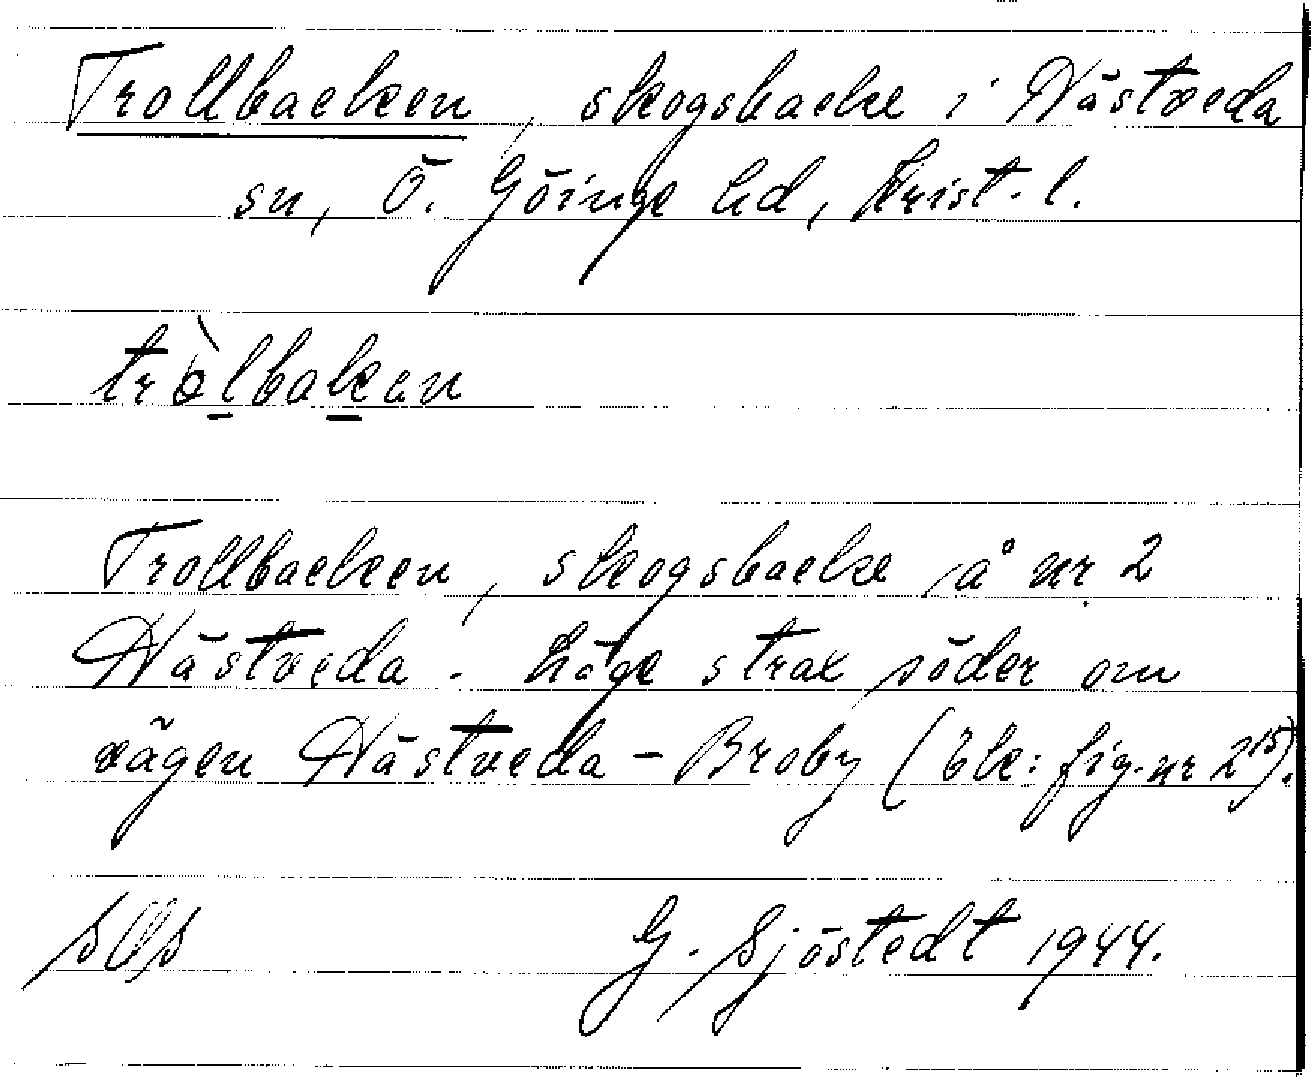 Trollbacken, skogsbacke i Hästveda
sn, Ö. Göinge hd, Krist. l.
tròlbakan
Trollbacken, skogsbacke å nr 2
Hästveda. Läge strax söder om
vägen Hästveda - Broby (Ek: fig. nr 2¹⁵).
G. Sjöstedt 1944.